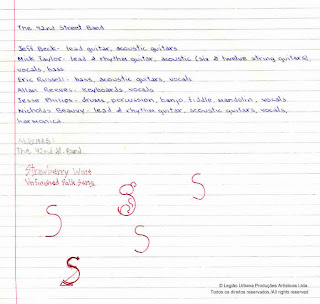 The 42nd Street Band
Jeff Beck - lead guitar, acoustic guitars
Mick Taylor - lead & rhythm guitar, acoustic (six & twelve string guitars),
vocals, bass
Eric Russell - bass, acoustic guitars, vocals
Allan Reeves - keyboards, vocals
Jesse Philips - drums, percussion, banjo, fiddle, mandolin, vocals
Nicholas Beauvy - lead & rhythm guitar, acoustic guitars, vocals,
harmonica.
ALBUMS:
The 42nd St. Band
Strawberry Wine
Unfinished Folk Songs
S
S
S
S
© Legião Urbana Produções Artísticas Ltda.
Todos os direitos reservados./All rights reserved